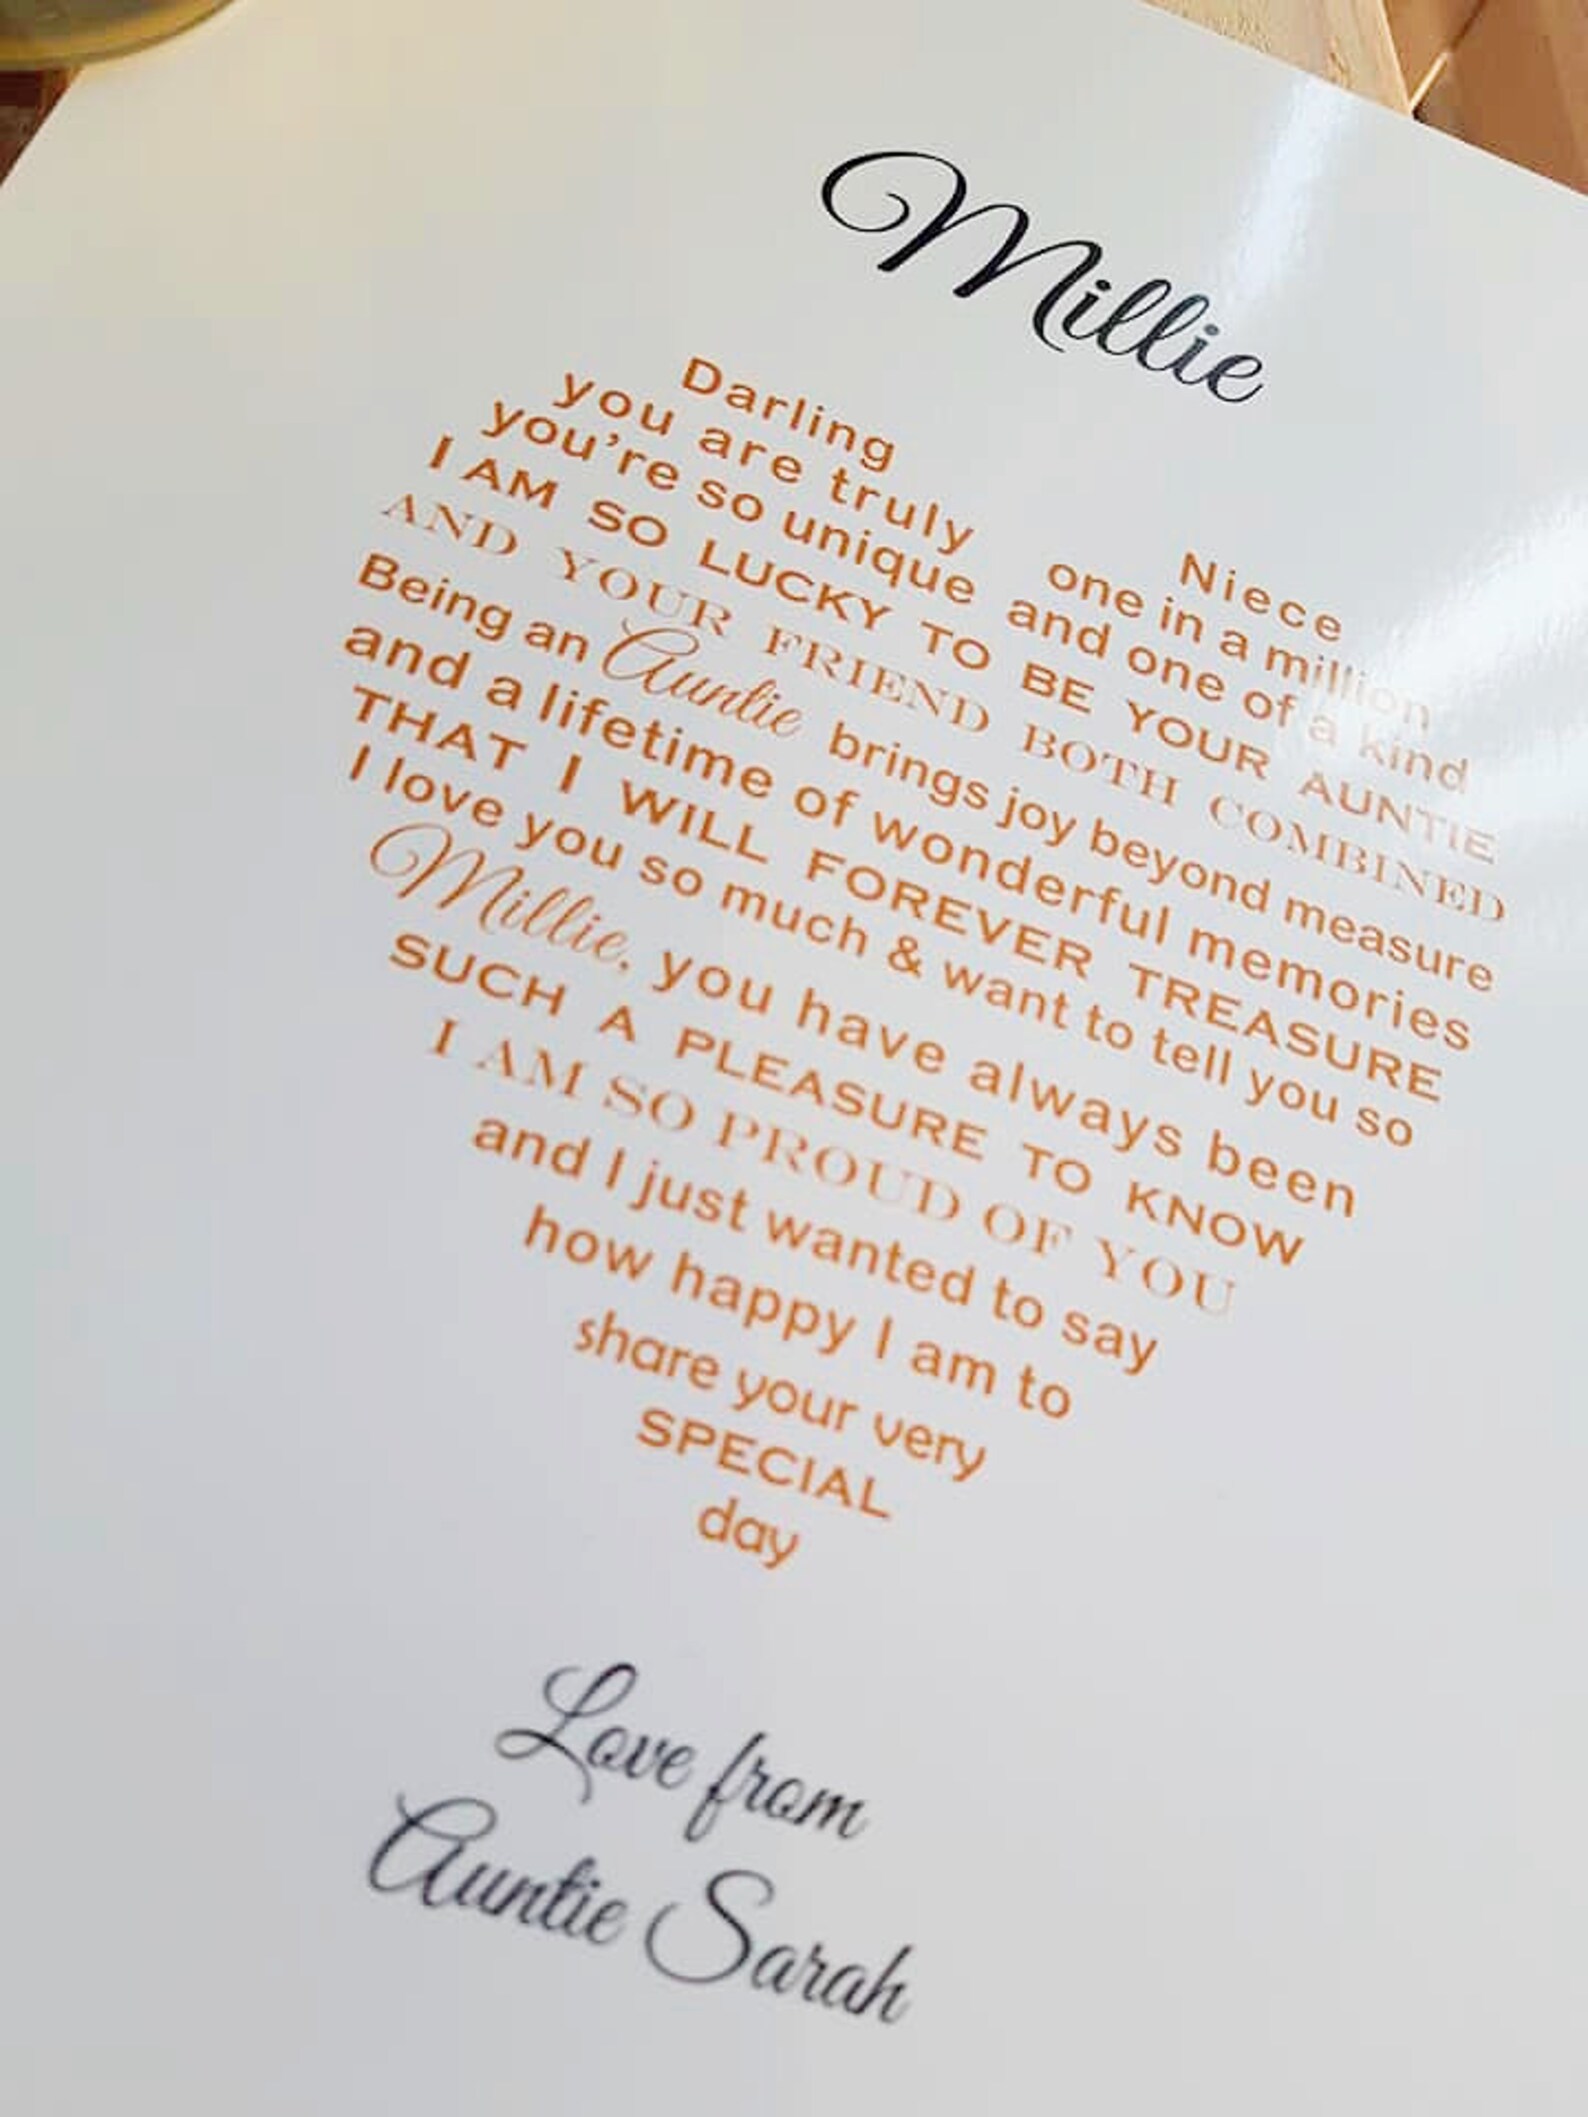 Millie
Darling Niece
you are truly one in a million
you're so unique and one of a kind
I AM SO LUCKY TO BE YOUR AUNTIE
AND YOUR FRIEND BOTH COMBINED
Being an Auntie brings joy beyond measure
and a lifetime of wonderful memories
THAT I WILL FOREVER TREASURE
I love you so much & want to tell you so
Millie, you have always been
SUCH A PLEASURE TO KNOW
I AM SO PROUD OF YOU
and I just wanted to say
how happy I am to
share your very
SPECIAL
day
Love from
Auntie Sarah